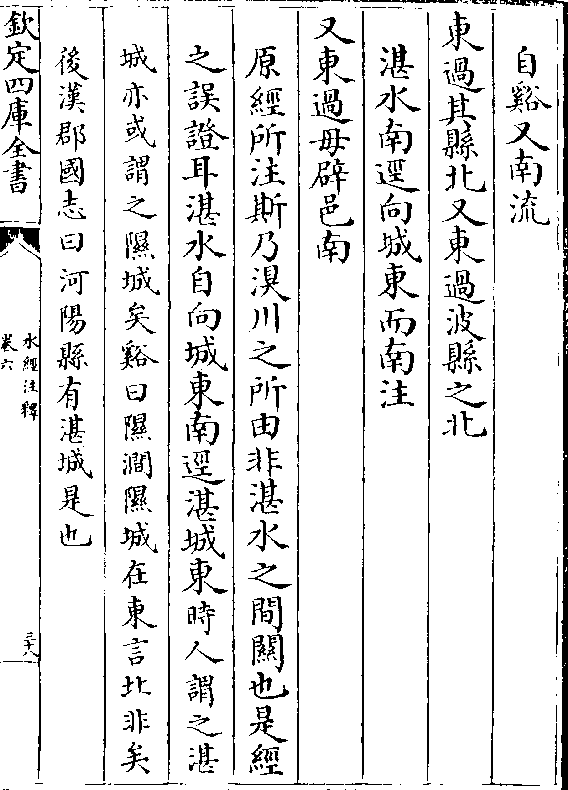 自谿又南流
東過其縣北又東過波縣之北
湛水南逕向城東而南注
又東過毋辟邑南
原經所注斯乃湨川之所由非湛水之間關也是經
之誤證耳湛水自向城東南逕湛城東時人謂之湛
城亦或謂之隰城矣谿曰隰澗隰城在東言北非矣
後漢郡國志曰河陽縣有湛城是也
欽定四庫全書
水經注釋
卷六
三十八